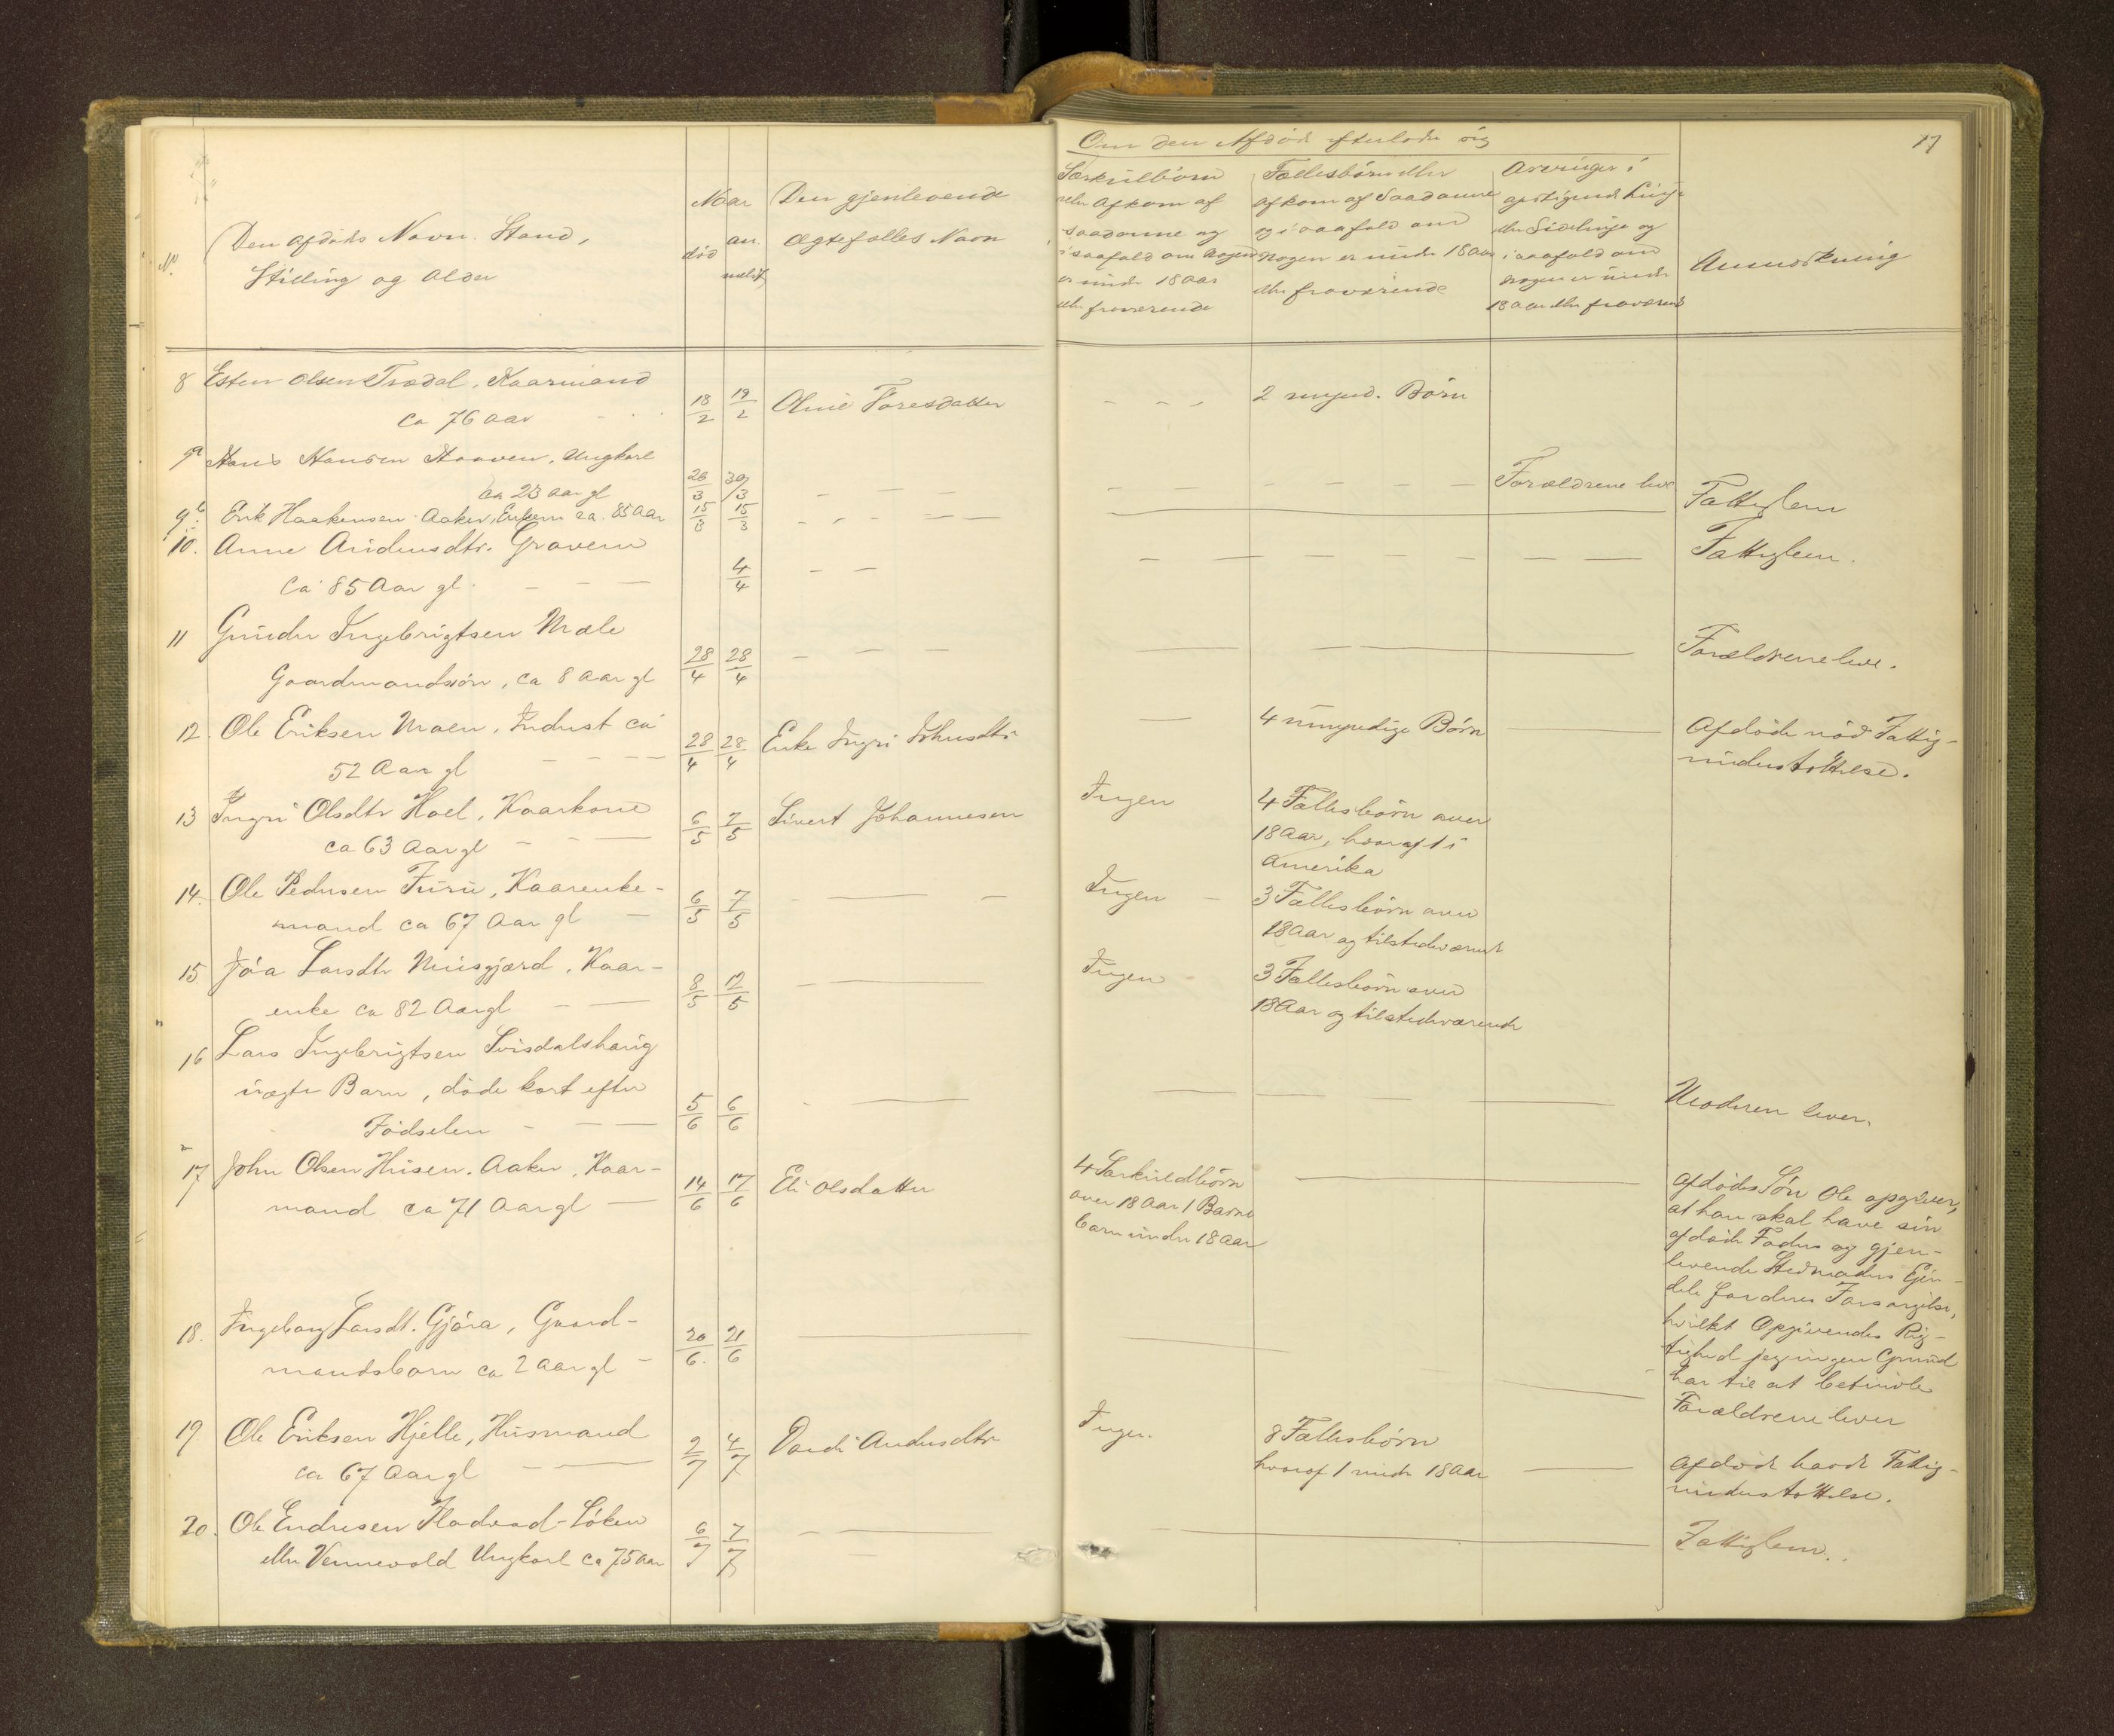 17
Om den Afdøde efterlader sig
No.
Den afdødes Navn. Stand,
Stilling og Alder
Naar
død
an-
meldt
Den gjenlevende
Ægtefælles Navn
Særkulbörn
eller Afkom af
saadanne og
i saafald om nogen
er under 18 Aar
eller fraværende
Fællesbörn eller
Afkom af Saadanne
og i saafald om
nogen er under 18 Aar
eller fraværende
Arvinger i
opstigende Linje
eller Sidelinje og
i saafald om
nogen er under
18 Aar eller fraværende
Anmærkning
8 Esten Olsen Trædal, Kaarmand
ca 76 Aar
18/2 19/2 Toresdatter
2 umynd. Börn
9a Hans Hansen, Ungkarl
ca 23 Aar gl
26/3 30/3
Forældrene leve
9b. Erik Haakensen Aaker, ca. 85 Aar
15/3 15/3
Fattiglem
10. Anne Andersdtr. Gravem
Ca 85 Aar gl.
4/4
Fattiglem.
11 Gunder Ingebrigtsen Mæle
Gaardmandssøn, ca 8 Aar gl
28/4 28/4
Forældrene leve.
12. Ole Eriksen Moen, Inderst ca
52 Aar gl
28/4 28/4 Enke Ingri Johnsdtr
4 umyndige Börn
Afdöde nöd Fattig-
understöttelse.
13 Ingri Olsdtr Hoel, Kaarkone
ca 63 Aar gl
6/5 7/5 Sivert Johannesen
Ingen
4 Fællesbörn over
18 Aar, hvoraf 1 i
Amerika
14. Ole Pedersen Furu, Kaarenke-
mand ca 67 Aar gl
6/5 7/5
Ingen
3 Fællesbörn over
18 Aar og tilstedeværende
15 Larsdtr Musgjærd, Kaar-
enke ca 82 Aar gl
8/5 12/5
Ingen
3 Fællesbörn over
18 Aar og tilstedeværende
16 Lars Ingebrigtsen Svisdalshaug
uægte Barn, døde kort efter
Fødselen
5/6 6/6
Moderen lever.
17 John Olsen Husen. Aaker, Kaar-
mand ca 71 Aar gl
14/6 17/6 Eli Olsdatter
4 Særkuldbörn
over 18 Aar 1 Barne
barn under 18 Aar
Afdødes Sön Ole opgiver,
at han skal have sin
afdöde Faders og gjen-
levende Stedmoders Ejen-
dele for deres Forsørgelse,
hvilket Opgivendes Rig-
tighed jeg ingen Grund
har til at betvivle
18. Ingeborg Larsdt. Gjöra, Gaard-
mandsbarn ca 2 Aar gl
20/6. 21/6
Forældrene lever
19. Ole Eriksen Hjelle, Husmand
ca 67 Aar gl
2/7 4/7 Dordi Andersdtr
Ingen.
8 Fællesbörn
hvoraf 1 under 18 Aar
Afdöde havde Fattig-
understöttelse.
20. Ole Endresen Fladvad-Löken
eller Vennevold Ungkarl ca 75 Aar
6/7 7/7
Fattiglem.